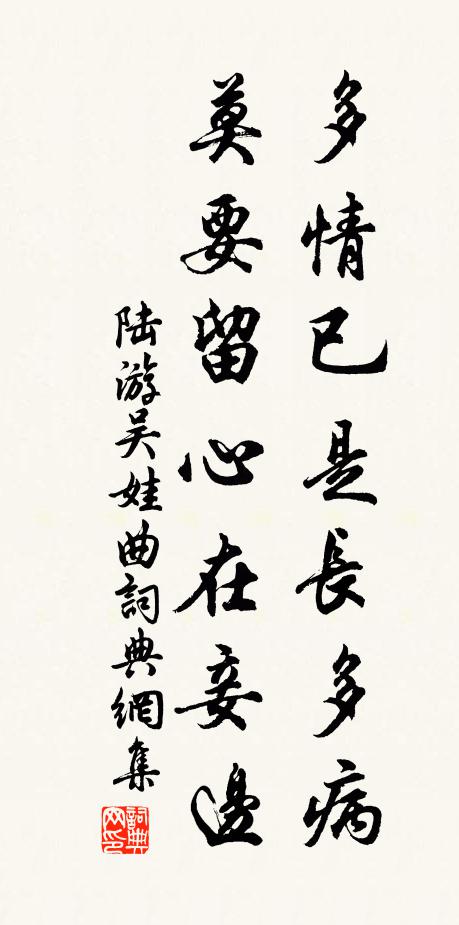 多情已是長多病
莫要留心在妾邊
陆游吴娃曲詞典網集
詞典网印